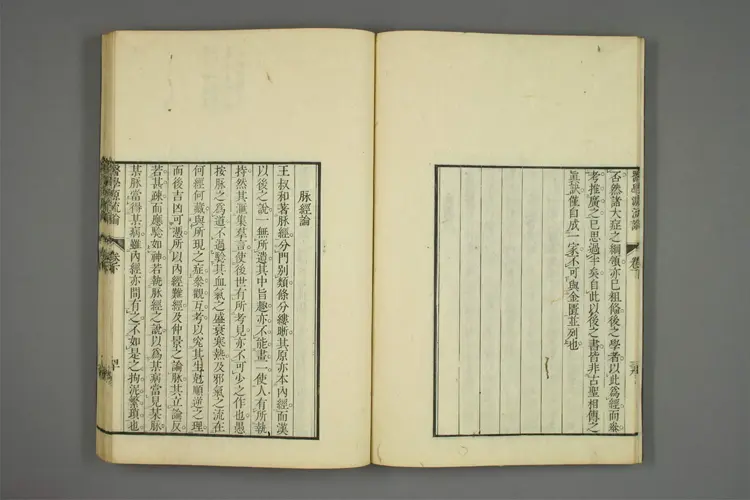 否然諸大症之綱領亦已粗備後之學者以此爲經而參
考推廣之已思過半矣自此以後之書皆非古聖相傳之
眞訣僅自成一家不可與金匱並列也
脉經論
王叔和著脉經分門別類條分縷晰其原亦本內經而漢
以後之說一無所遺其中旨趣亦不能畫一使人有所執
持然其彙集羣言使後世有所考見亦不可少之作也愚
按脉之爲道不過驗其血氣之盛衰寒熱及邪氣之流在
何經何藏與所現之症參觀互考以究其生尅順逆之理
而後吉凶可憑所以內經難經及仲景之論脉其立論反
若甚疎而應驗如神若執脉經之說以爲某病當見某脉
某脉當得某病雖內經亦間有之不如是之拘泥繁瑣也
醫學源流論
卷下